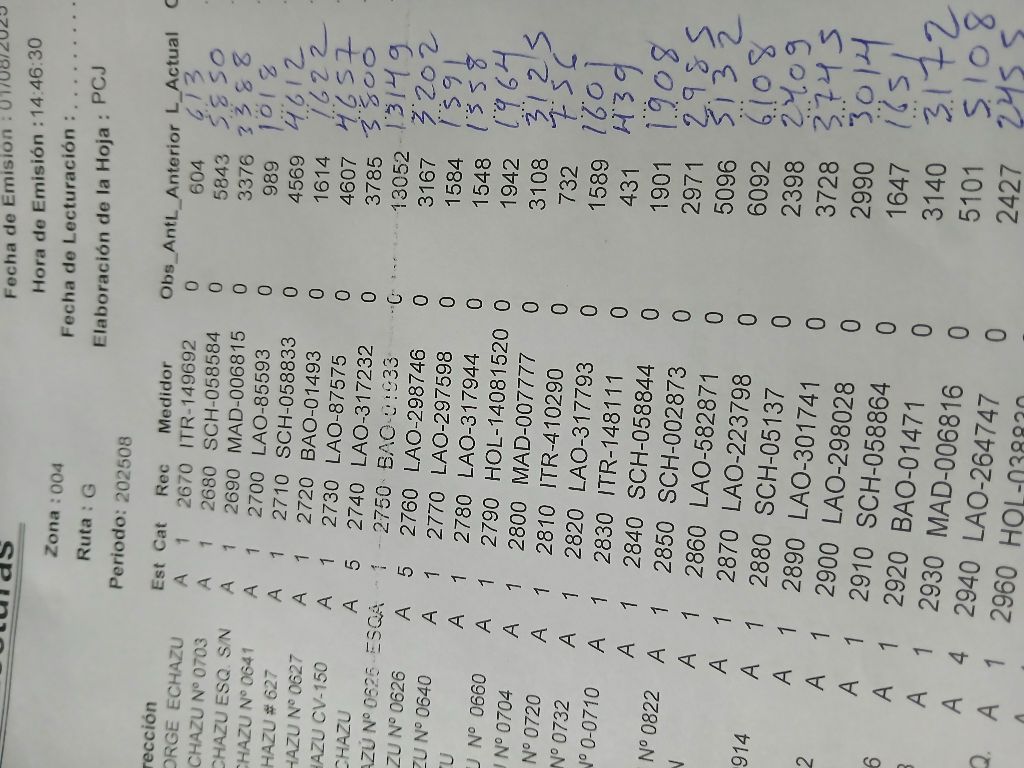 Fecha de Emisión : 01/08/2025
Zona : 004 Hora de Emisión : 14:46:30
Ruta : G Fecha de Lecturación : . . . . . . . .
Periodo: 202508 Elaboración de la Hoja : PCJ
rección Est Cat Rec Medidor Obs_Ant L_Anterior L_Actual
ORGE ECHAZU A 1 2670 ITR-149692 0 604 613
CHAZU Nº 0703 A 1 2680 SCH-058584 0 5843 5850
CHAZU ESQ. S/N A 1 2690 MAD-006815 0 3376 3388
HAZU Nº 0641 A 1 2700 LAO-85593 0 989 1018
HAZU # 627 A 1 2710 SCH-058833 0 4569 4612
HAZU Nº 0627 A 1 2720 BAO-01493 0 1614 1622
HAZU CV-150 A 1 2730 LAO-87575 0 4607 4657
CHAZU A 5 2740 LAO-317232 0 3785 3800
AZÚ Nº 0626 ESQA 1 2750 BAO-01933 0 13052 13149
ZU Nº 0626 A 5 2760 LAO-298746 0 3167 3202
ZU Nº 0640 A 1 2770 LAO-297598 0 1584 1591
U A 1 2780 LAO-317944 0 1548 1558
U Nº 0660 A 1 2790 HOL-14081520 0 1942 1964
Nº 0704 A 1 2800 MAD-007777 0 3108 3121
Nº 0720 A 1 2810 ITR-410290 0 732 756
Nº 0732 A 1 2820 LAO-317793 0 1589 1601
Nº 0-0710 A 1 2830 ITR-148111 0 431 439
A 1 2840 SCH-058844 0 1901 1908
Nº 0822 A 1 2850 SCH-002873 0 2971 2985
N A 1 2860 LAO-582871 0 5096 5132
A 1 2870 LAO-223798 0 6092 6108
914 A 1 2880 SCH-05137 0 2398 2409
A 1 2890 LAO-301741 0 3728 3745
2 A 1 2900 LAO-298028 0 2990 3014
A 1 2910 SCH-058864 0 1647 1651
6 A 1 2920 BAO-01471 0 3140 3172
A 1 2930 MAD-006816 0 5101 5108
A 4 2940 LAO-264747 0 2427 2455
Q. A 1 2960